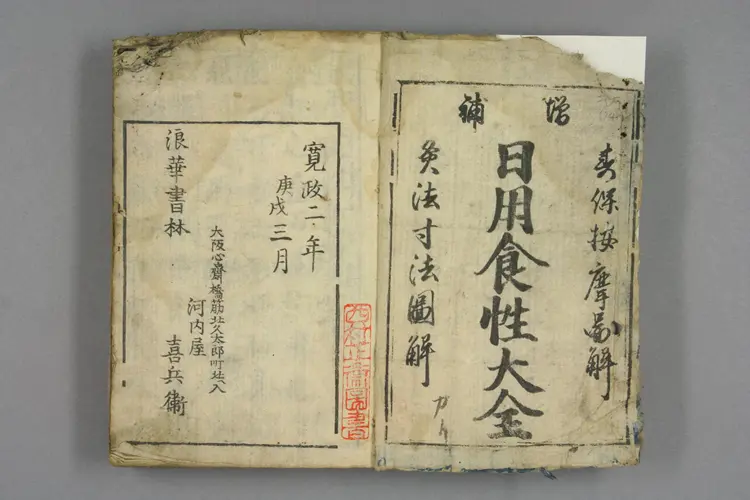 増補
寿保按摩圖解
日用食性大全
灸法寸法圖解
寛政二年
庚戌三月
大阪心齋橋筋北久太郎町北入
河内屋
喜兵衛
浪華書林